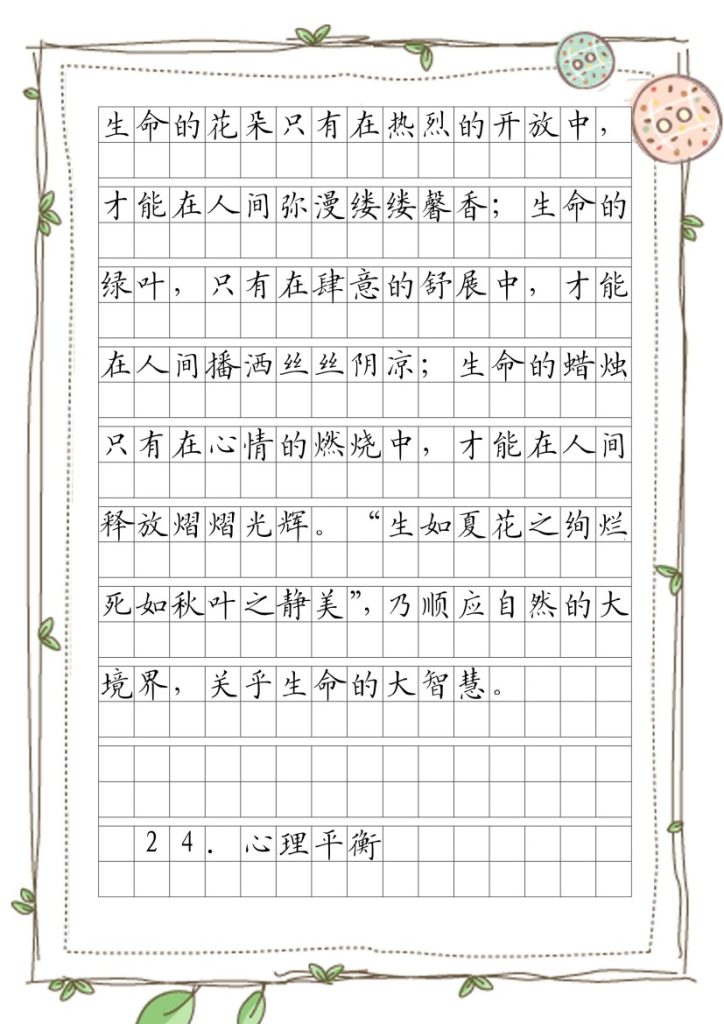 生命的花朵只有在热烈的开放中，
才能在人间弥漫缕缕馨香；生命的
绿叶，只有在肆意的舒展中，才能
在人间播洒丝丝阴凉；生命的蜡烛
只有在心情的燃烧中，才能在人间
释放熠熠光辉。“生如夏花之绚烂
死如秋叶之静美”，乃顺应自然的大
境界，关乎生命的大智慧。
24．心理平衡